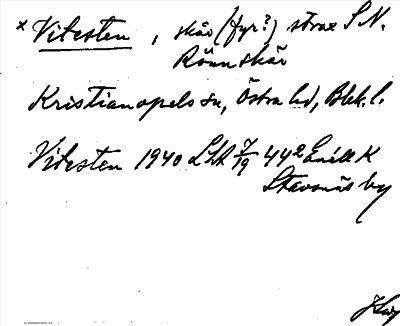 × Vitesten, skär (fyr?) strax S N.
Rönnskär
Kristianopels sn, Östra hd, Blek. l.
Vitesten 1940 LSA 7/19 442 Enill K
Stavsnäs by